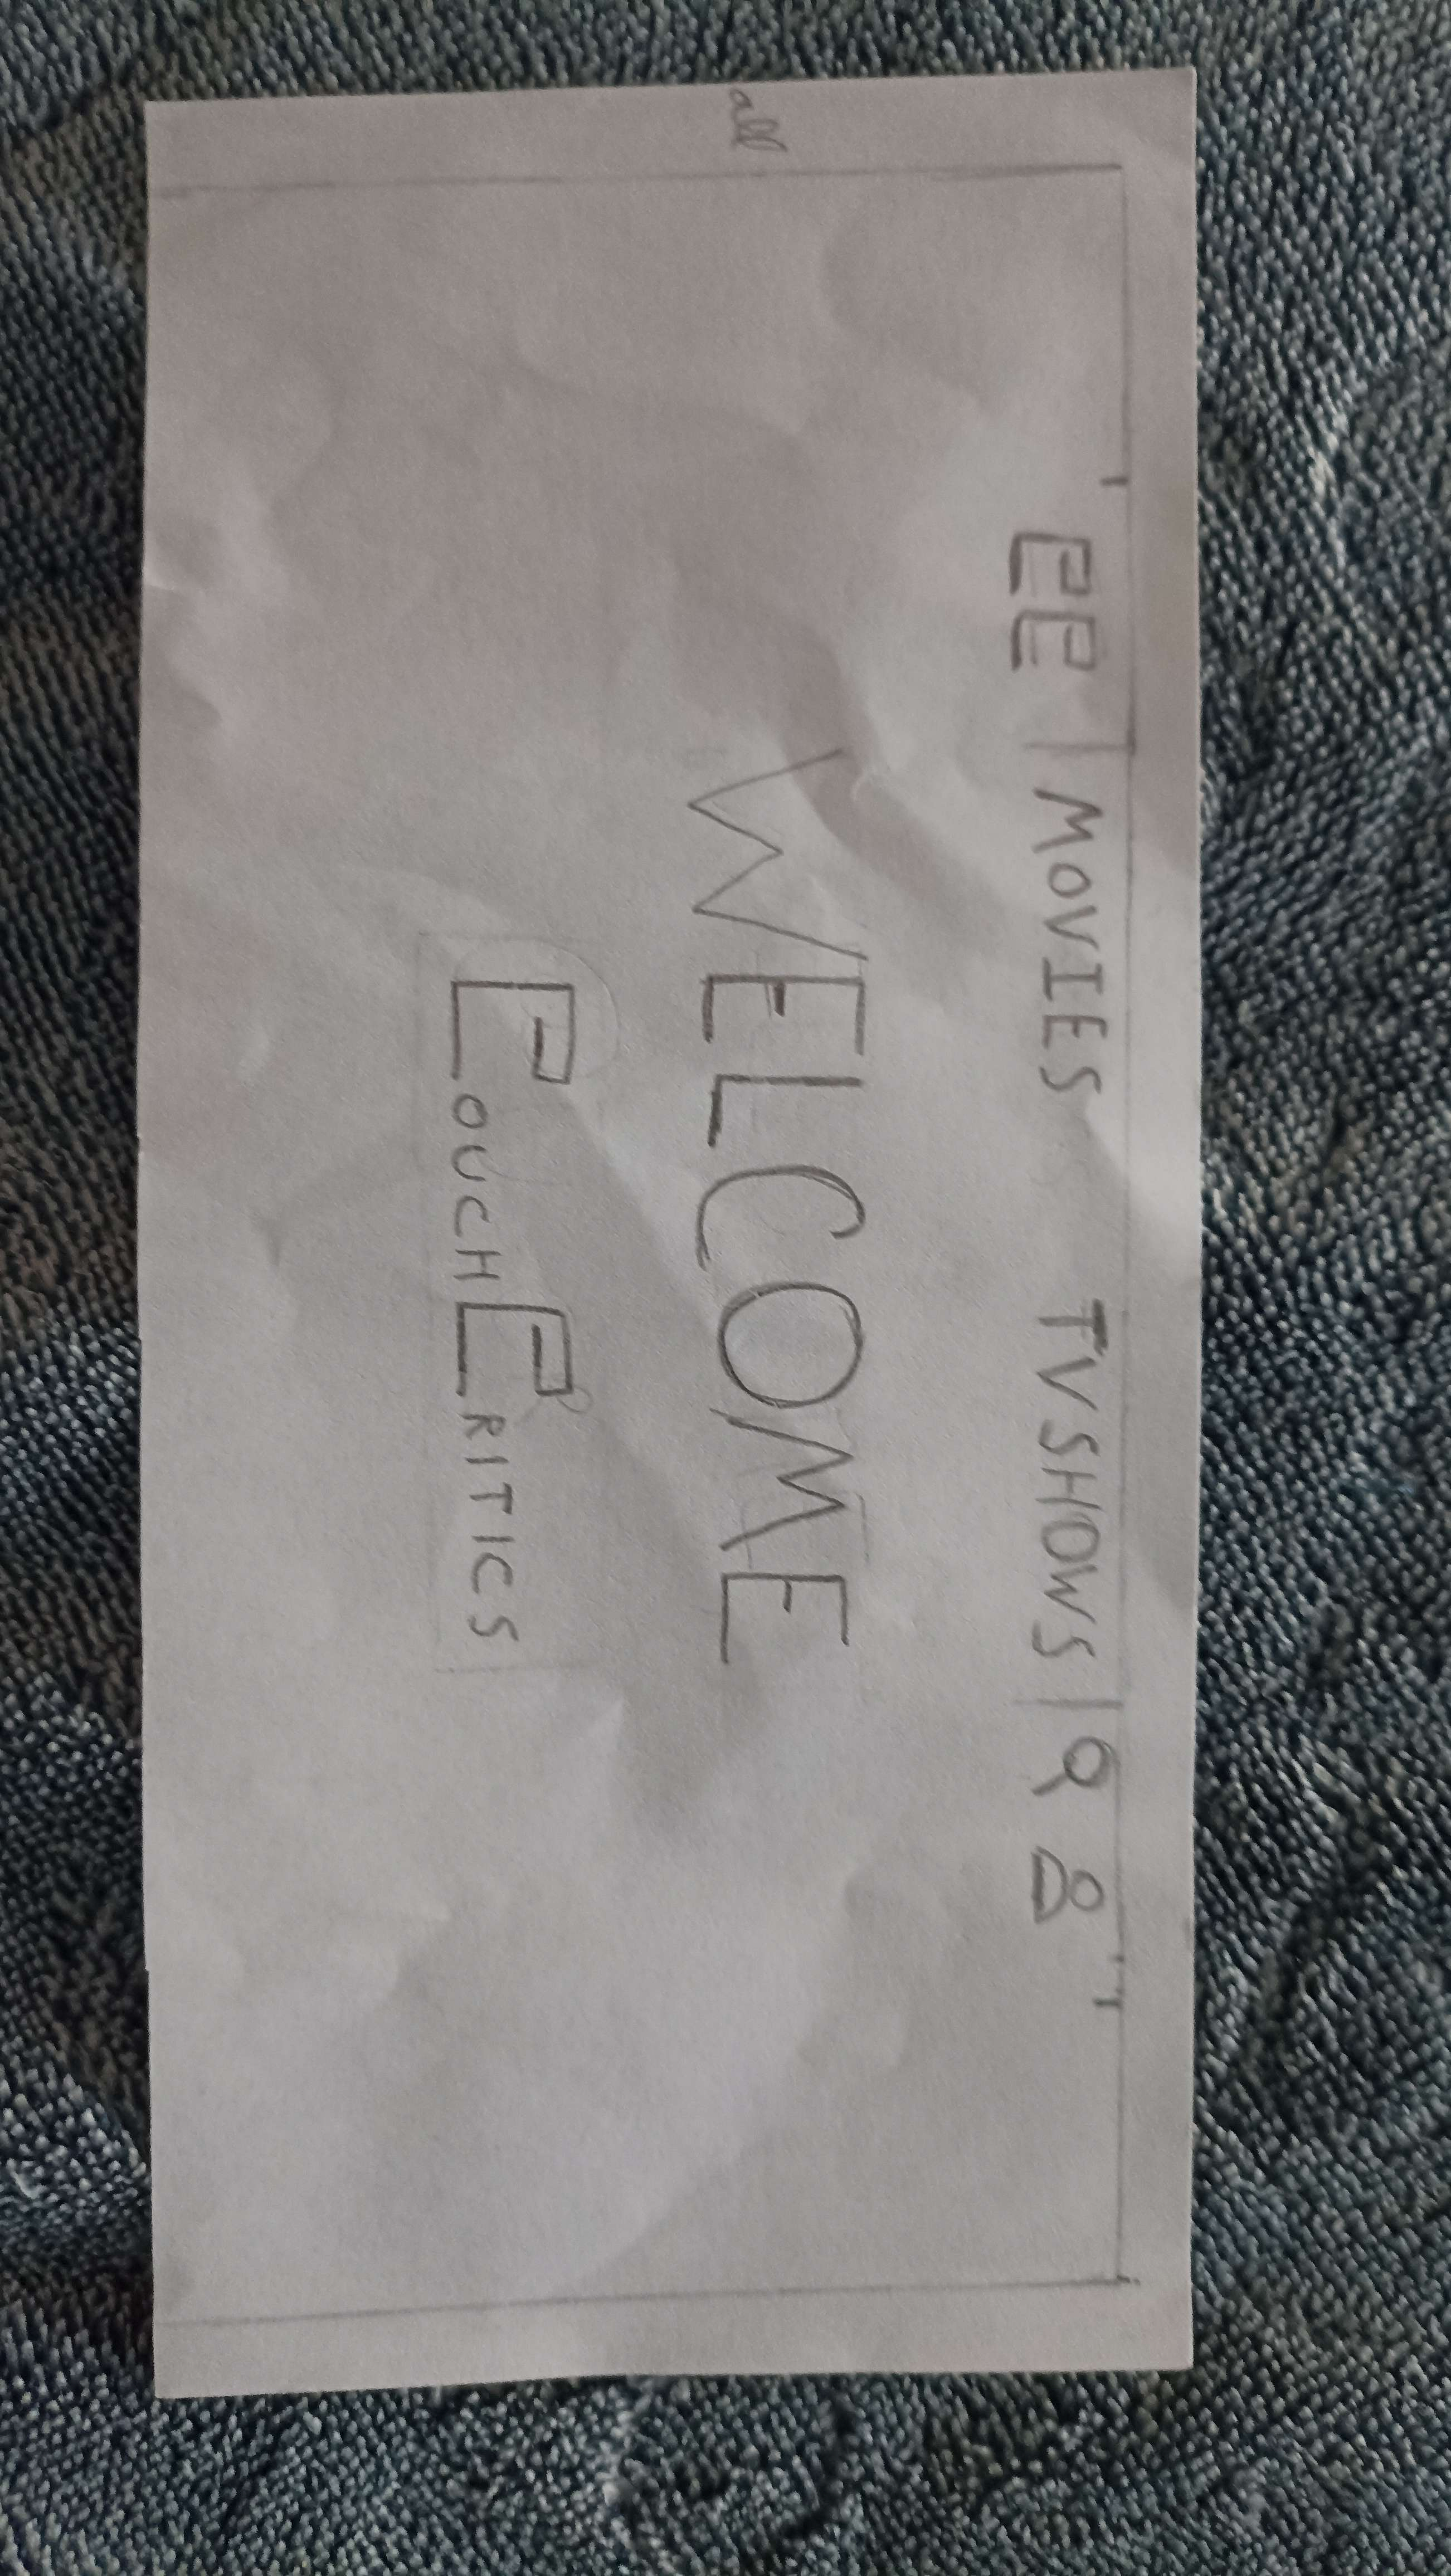 CC | MOVIES TVSHOWS |
WELCOME
COUCH CRITICS
all